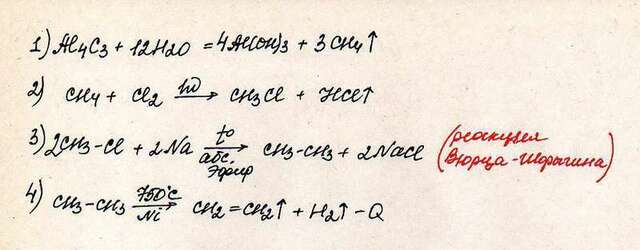 1) Al4C3 + 12H2O = 4Al(OH)3 + 3CH4↑
2) CH4 + Cl2 hν→ CH3Cl + HCl↑
3) 2CH3-Cl + 2Na t° абс. эфир→ CH3-CH3 + 2NaCl (реакция Вюрца-Шорыгина)
4) CH3-CH3 750°C Ni→ CH2=CH2↑ + H2↑ - Q